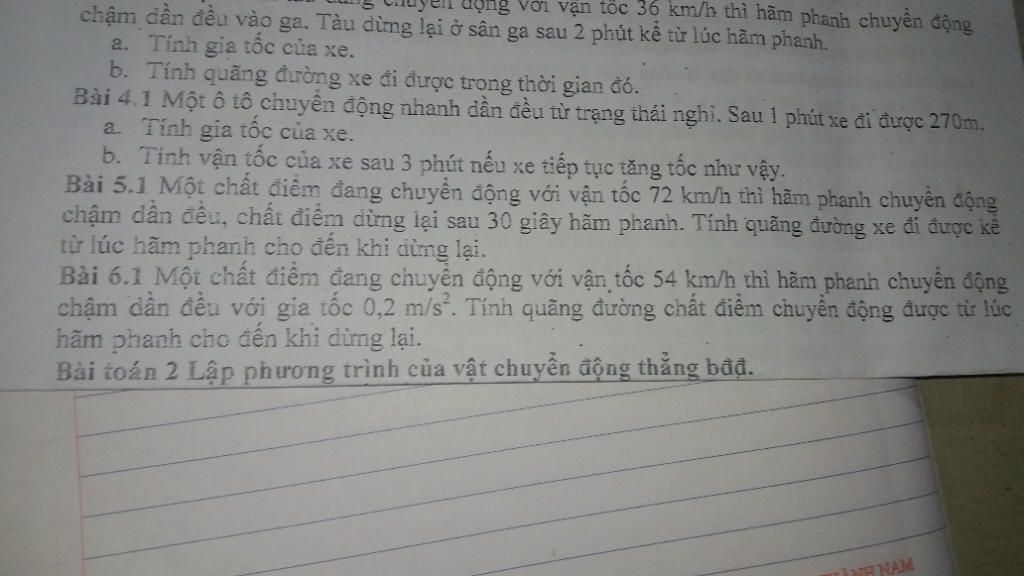 chuyển động với vận tốc 36 km/h thì hãm phanh chuyển động
chậm dần đều vào ga. Tàu dừng lại ở sân ga sau 2 phút kể từ lúc hãm phanh.
a. Tính gia tốc của xe.
b. Tính quãng đường xe đi được trong thời gian đó.
Bài 4.1 Một ô tô chuyển động nhanh dần đều từ trạng thái nghỉ. Sau 1 phút xe đi được 270m.
a. Tính gia tốc của xe.
b. Tính vận tốc của xe sau 3 phút nếu xe tiếp tục tăng tốc như vậy.
Bài 5.1 Một chất điểm đang chuyển động với vận tốc 72 km/h thì hãm phanh chuyển động
chậm dần đều, chất điểm dừng lại sau 30 giây hãm phanh. Tính quãng đường xe đi được kể
từ lúc hãm phanh cho đến khi dừng lại.
Bài 6.1 Một chất điểm đang chuyển động với vận tốc 54 km/h thì hãm phanh chuyển động
chậm dần đều với gia tốc 0,2 m/s². Tính quãng đường chất điểm chuyển động được từ lúc
hãm phanh cho đến khi dừng lại.
Bài toán 2 Lập phương trình của vật chuyển động thẳng bđđ.
NAM